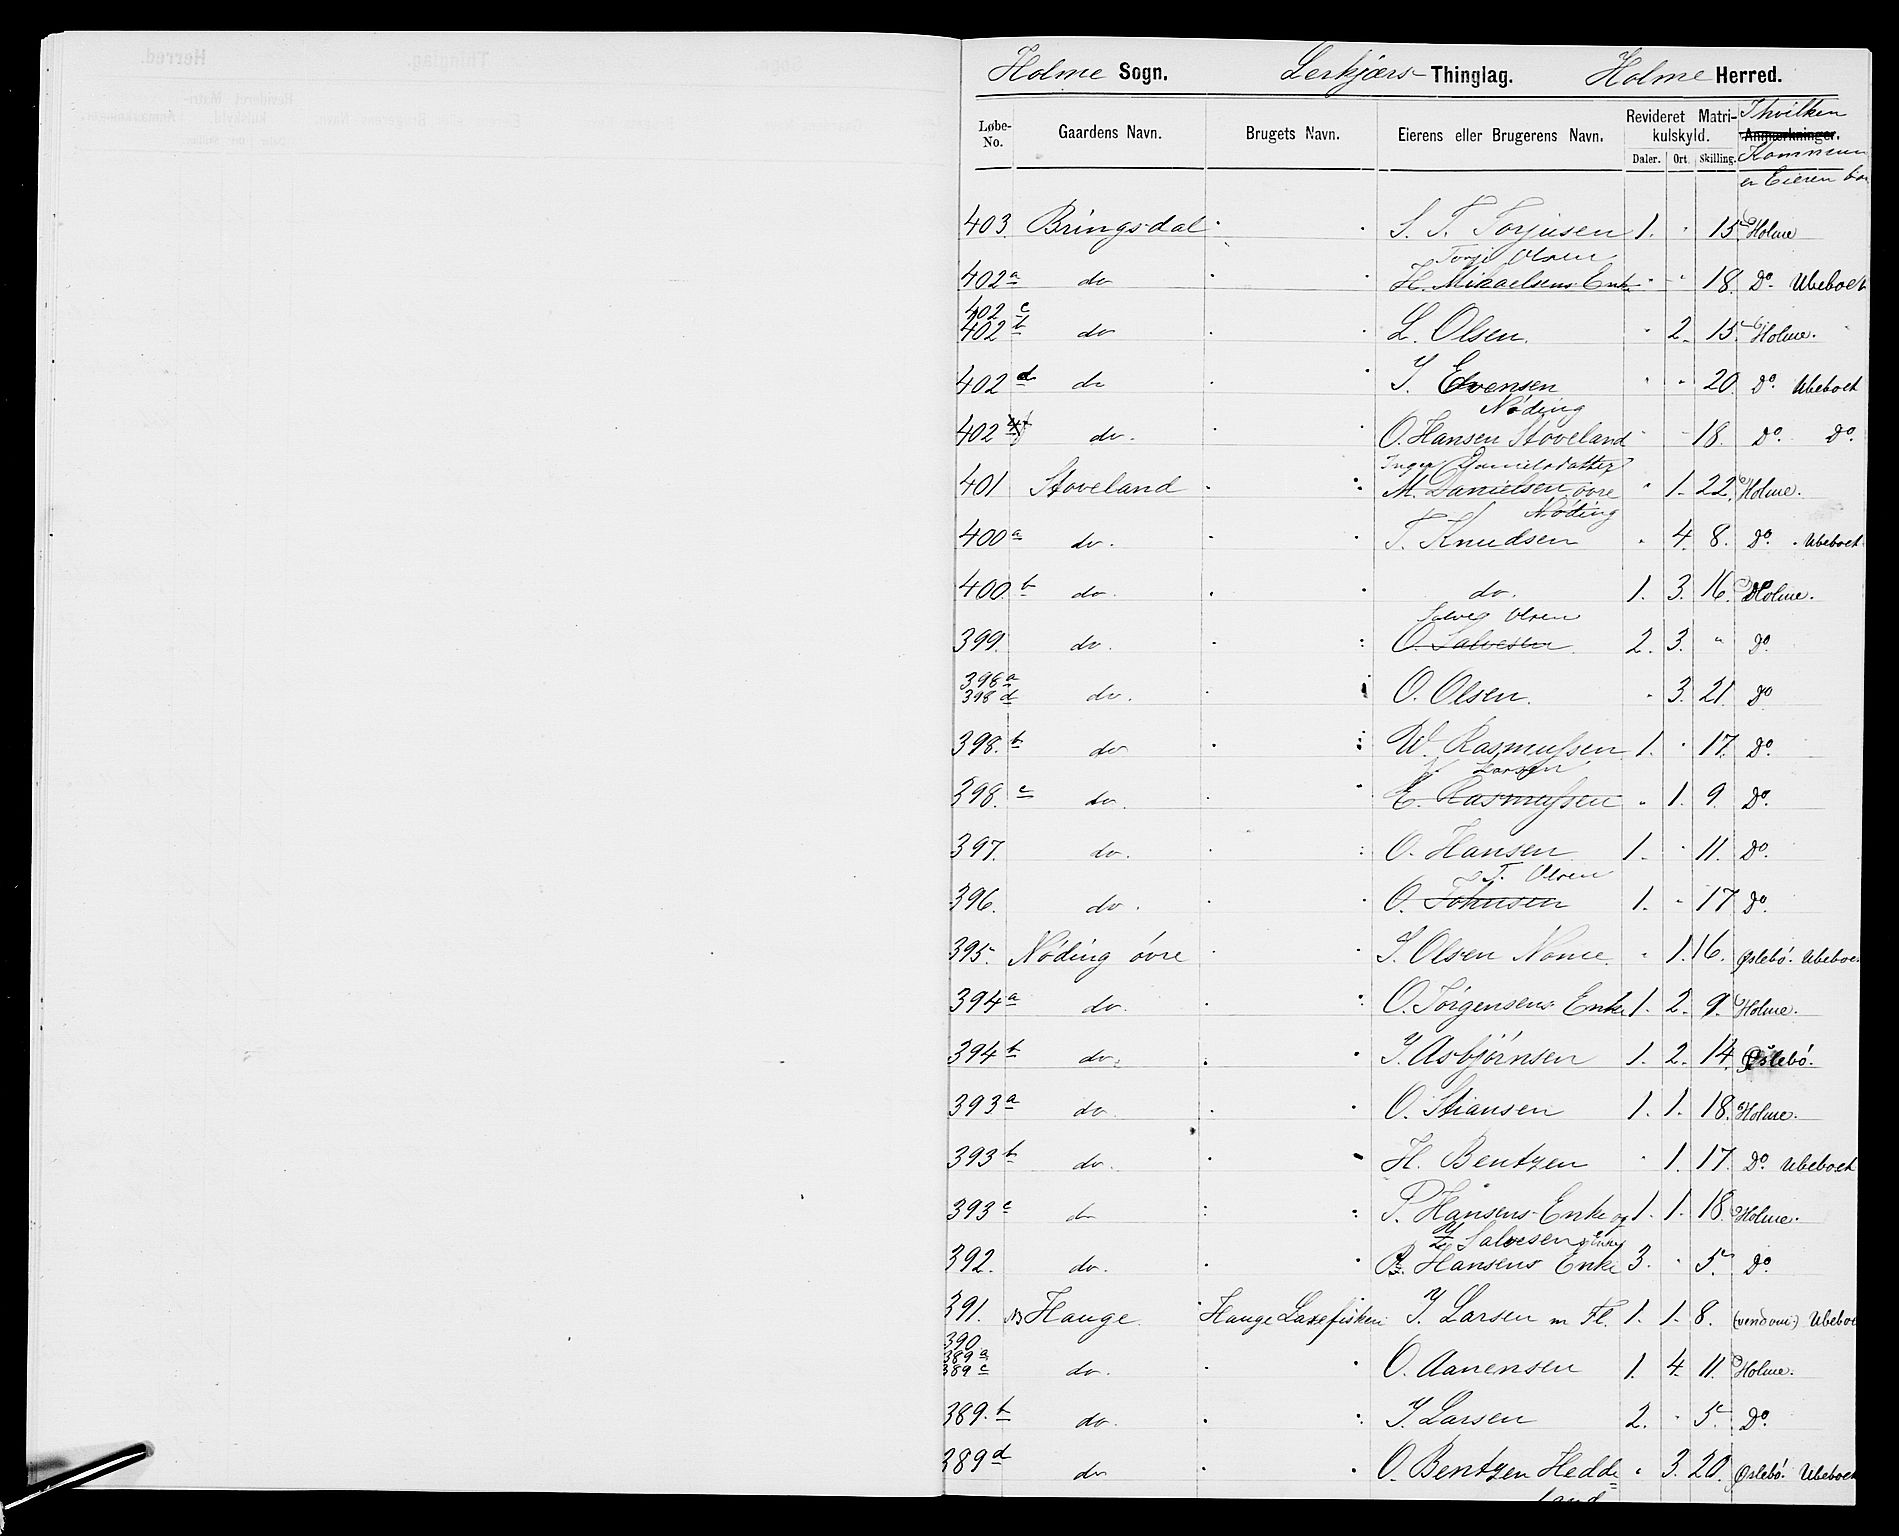 Holme Sogn. Lerkjærs Thinglag. Holme Herred.
Løbe-No. Gaardens Navn. Brugets Navn. Eierens eller Brugerens Navn. Revideret Matrikulskyld. Daler. Ort. Skilling. Anmærkninger. Ihvilken Kommune er Eieren
403. Bringsdal S. T. Torjusen 1. " 15 Holme
Torje Olsen
402 a do H. Mikaelsens Enke " " 18. Do. Ubeboet
402 c
402 b do L. Olsen. " 2. 15 Holme.
402 d do J. Evensen " " 20 Do. Ubeboet
Nöding
402 do. O. Hansen Stoveland " 18. Do. Do.
Inger Danielsdatter
401 Stoveland M. Danielsen övre " 1. 22. Holme.
Nöding
400 a do. T. Knudsen " 4. 8. Do. Ubeboet
400. b do. do. 1. 3. 16. Holme.
Salveg Olsen
399. do. O. Salvesen. 2. 3. " Do
398 a
398 d do. O. Olsen. " 3. 21. Do
398. b do W. Rasmussen 1. " 17. Do.
Larsen
398. c do. E. Rasmussen " 1. 9. Do.
397. do. O. Hansen 1. " 11. Do.
T. Olsen
396. do. O. Johnsen 1. " 17 Do.
395. Nöding övre J. Olsen Nome. " 1. 16. Øslebö. Ubeboet
394 a do. O. Jörgensens Enke 1. 2. 9. Holme.
394 b do. J. Asbjörnsen 1. 2. 14. Øslebö.
393 a do O. Stiansen 1. 1. 18. Holme.
393 b do. H. Bentzen " 1. 17. Do. Ubeboet
393 c do P. Hansens Enke og 1. 1. 18. Holme.
Salvesens Enke
392. do. Hansens Enke 3. " 5. Do.
391. Hauge. Hauge Laxefiskeri J. Larsen m Fl. 1. 1. 8. Ubeboet
390
389 a
389 c do. O. Aanensen 1. 4. 11. Holme.
389. b do. J. Larsen 2. " 5. Do.
389 d do O. Bentzen Hedde= " 3. 20. Øslebö. Ubeboet
land